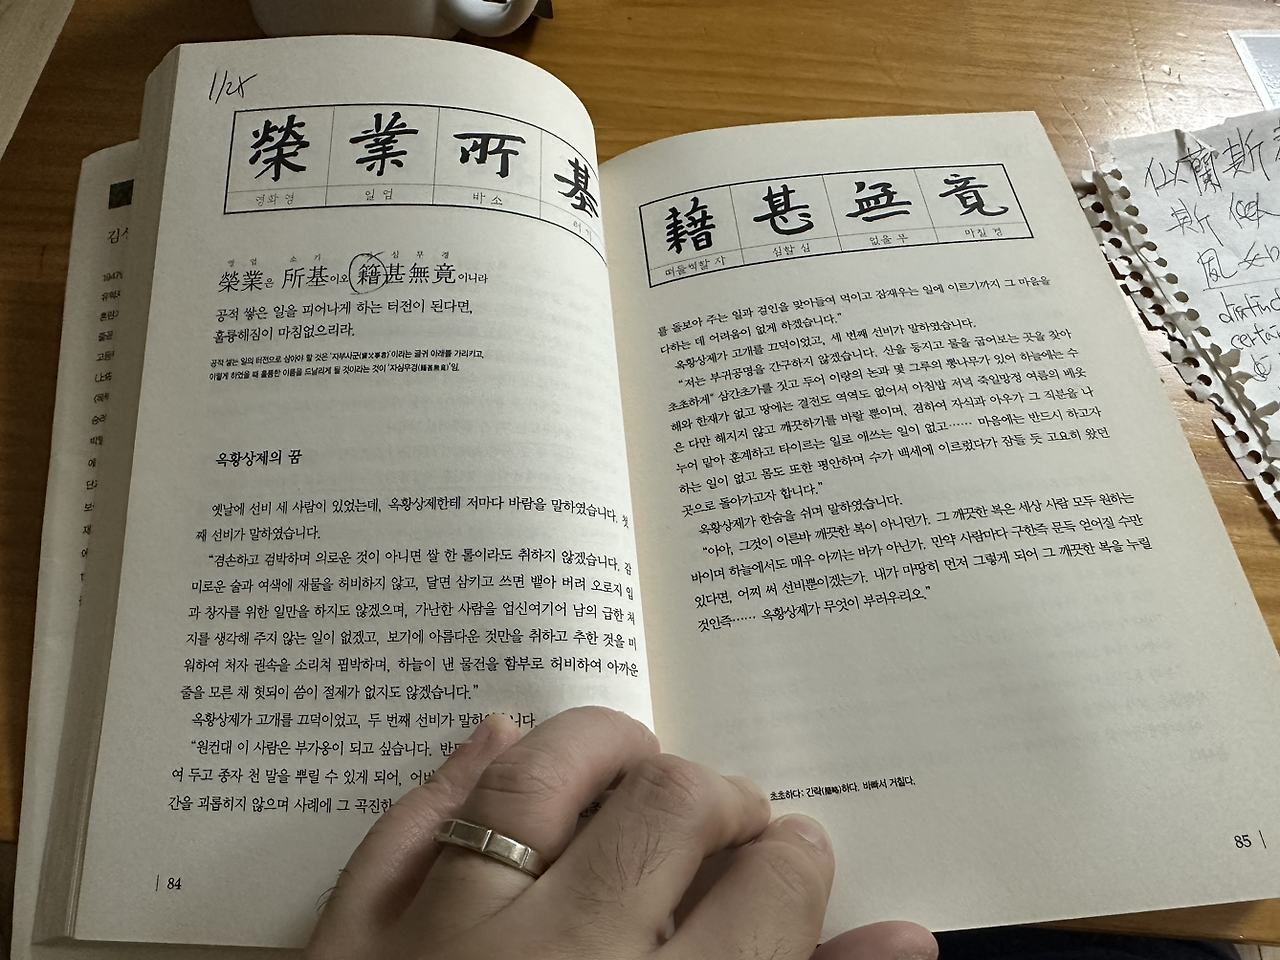 1/28
榮 業 所 基
영화 영 일 업 바 소 터 기
영 업 소 기 심 무 경
榮業은 所基이오 籍甚無竟이니라
공적 쌓은 일을 피어나게 하는 터전이 된다면,
훌륭해짐이 마침없으리라.
공적 쌓는 일의 터전으로 삼아야 할 것은 '자부사군(資父事君)'이라는 글귀 아래를 가리키고,
이렇게 하였을 때 훌륭한 이름을 드날리게 될 것이라는 것이 '자심무경(籍甚無竟)'임.
옥황상제의 꿈
옛날에 선비 세 사람이 있었는데, 옥황상제한테 저마다 바람을 말하였습니다. 첫
째 선비가 말하였습니다.
"겸손하고 검박하며 의로운 것이 아니면 쌀 한 톨이라도 취하지 않겠습니다. 감
미로운 술과 여색에 재물을 허비하지 않고, 달면 삼키고 쓰면 뱉아 버려 오로지 입
과 창자를 위한 일만을 하지도 않겠으며, 가난한 사람을 업신여기어 남의 급한 처
지를 생각해 주지 않는 일이 없겠고, 보기에 아름다운 것만을 취하고 추한 것을 미
워하여 처자 권속을 소리쳐 핍박하며, 하늘이 낸 물건을 함부로 허비하여 아까운
줄을 모른 채 헛되이 씀이 절제가 없지도 않겠습니다."
옥황상제가 고개를 끄먹이었고, 두 번째 선비가 말하였습니다.
"원컨대 이 사람은 부가옹이 되고 싶습니다. 반드
여 두고 종자 천 말을 뿌릴 수 있게 되어, 어버
간을 괴롭히지 않으며 사례에 그 곡진한
84
籍 甚 無 竟
떠들썩할 자 심할 심 없을 무 마칠 경
를 돌보아 주는 일과 걸인을 맞아들여 먹이고 잠재우는 일에 이르기까지 그 마음을
다하는 데 어려움이 없게 하겠습니다."
옥황상제가 고개를 끄먹이었고, 세 번째 선비가 말하였습니다.
"저는 부귀공명을 간구하지 않겠습니다. 산을 등지고 물을 굽어보는 곳을 찾아
초초하게* 삼간초가를 짓고 두어 이랑의 논과 몇 그루의 뽕나무가 있어 하늘에는 수
해와 한재가 없고 땅에는 결전도 역역도 없어서 아침밥 저녁 죽일망정 여름의 베옷
은 다만 해지지 않고 깨끗하기를 바랄 뿐이며, 겸하여 자식과 아우가 그 직분을 나
누어 맡아 훈계하고 타이르는 일로 애쓰는 일이 없고…… 마음에는 반드시 하고자
하는 일이 없고 몸도 또한 평안하며 수가 백세에 이르렀다가 잠들 듯 고요히 왔던
곳으로 돌아가고자 합니다."
옥황상제가 한숨을 쉬며 말하였습니다.
"아아, 그것이 이른바 깨끗한 복이 아니던가. 그 깨끗한 복은 세상 사람 모두 원하는
바이며 하늘에서도 매우 아끼는 바가 아닌가. 만약 사람마다 구한즉 문득 얻어질 수만
있다면, 어찌 써 선비뿐이겠는가. 내가 마땅히 먼저 그렇게 되어 그 깨끗한 복을 누릴
것인즉…… 옥황상제가 무엇이 부러우리오."
초초하다: 간략(簡略)하다. 바빠서 거칠다.
85
似蘭斯
斯